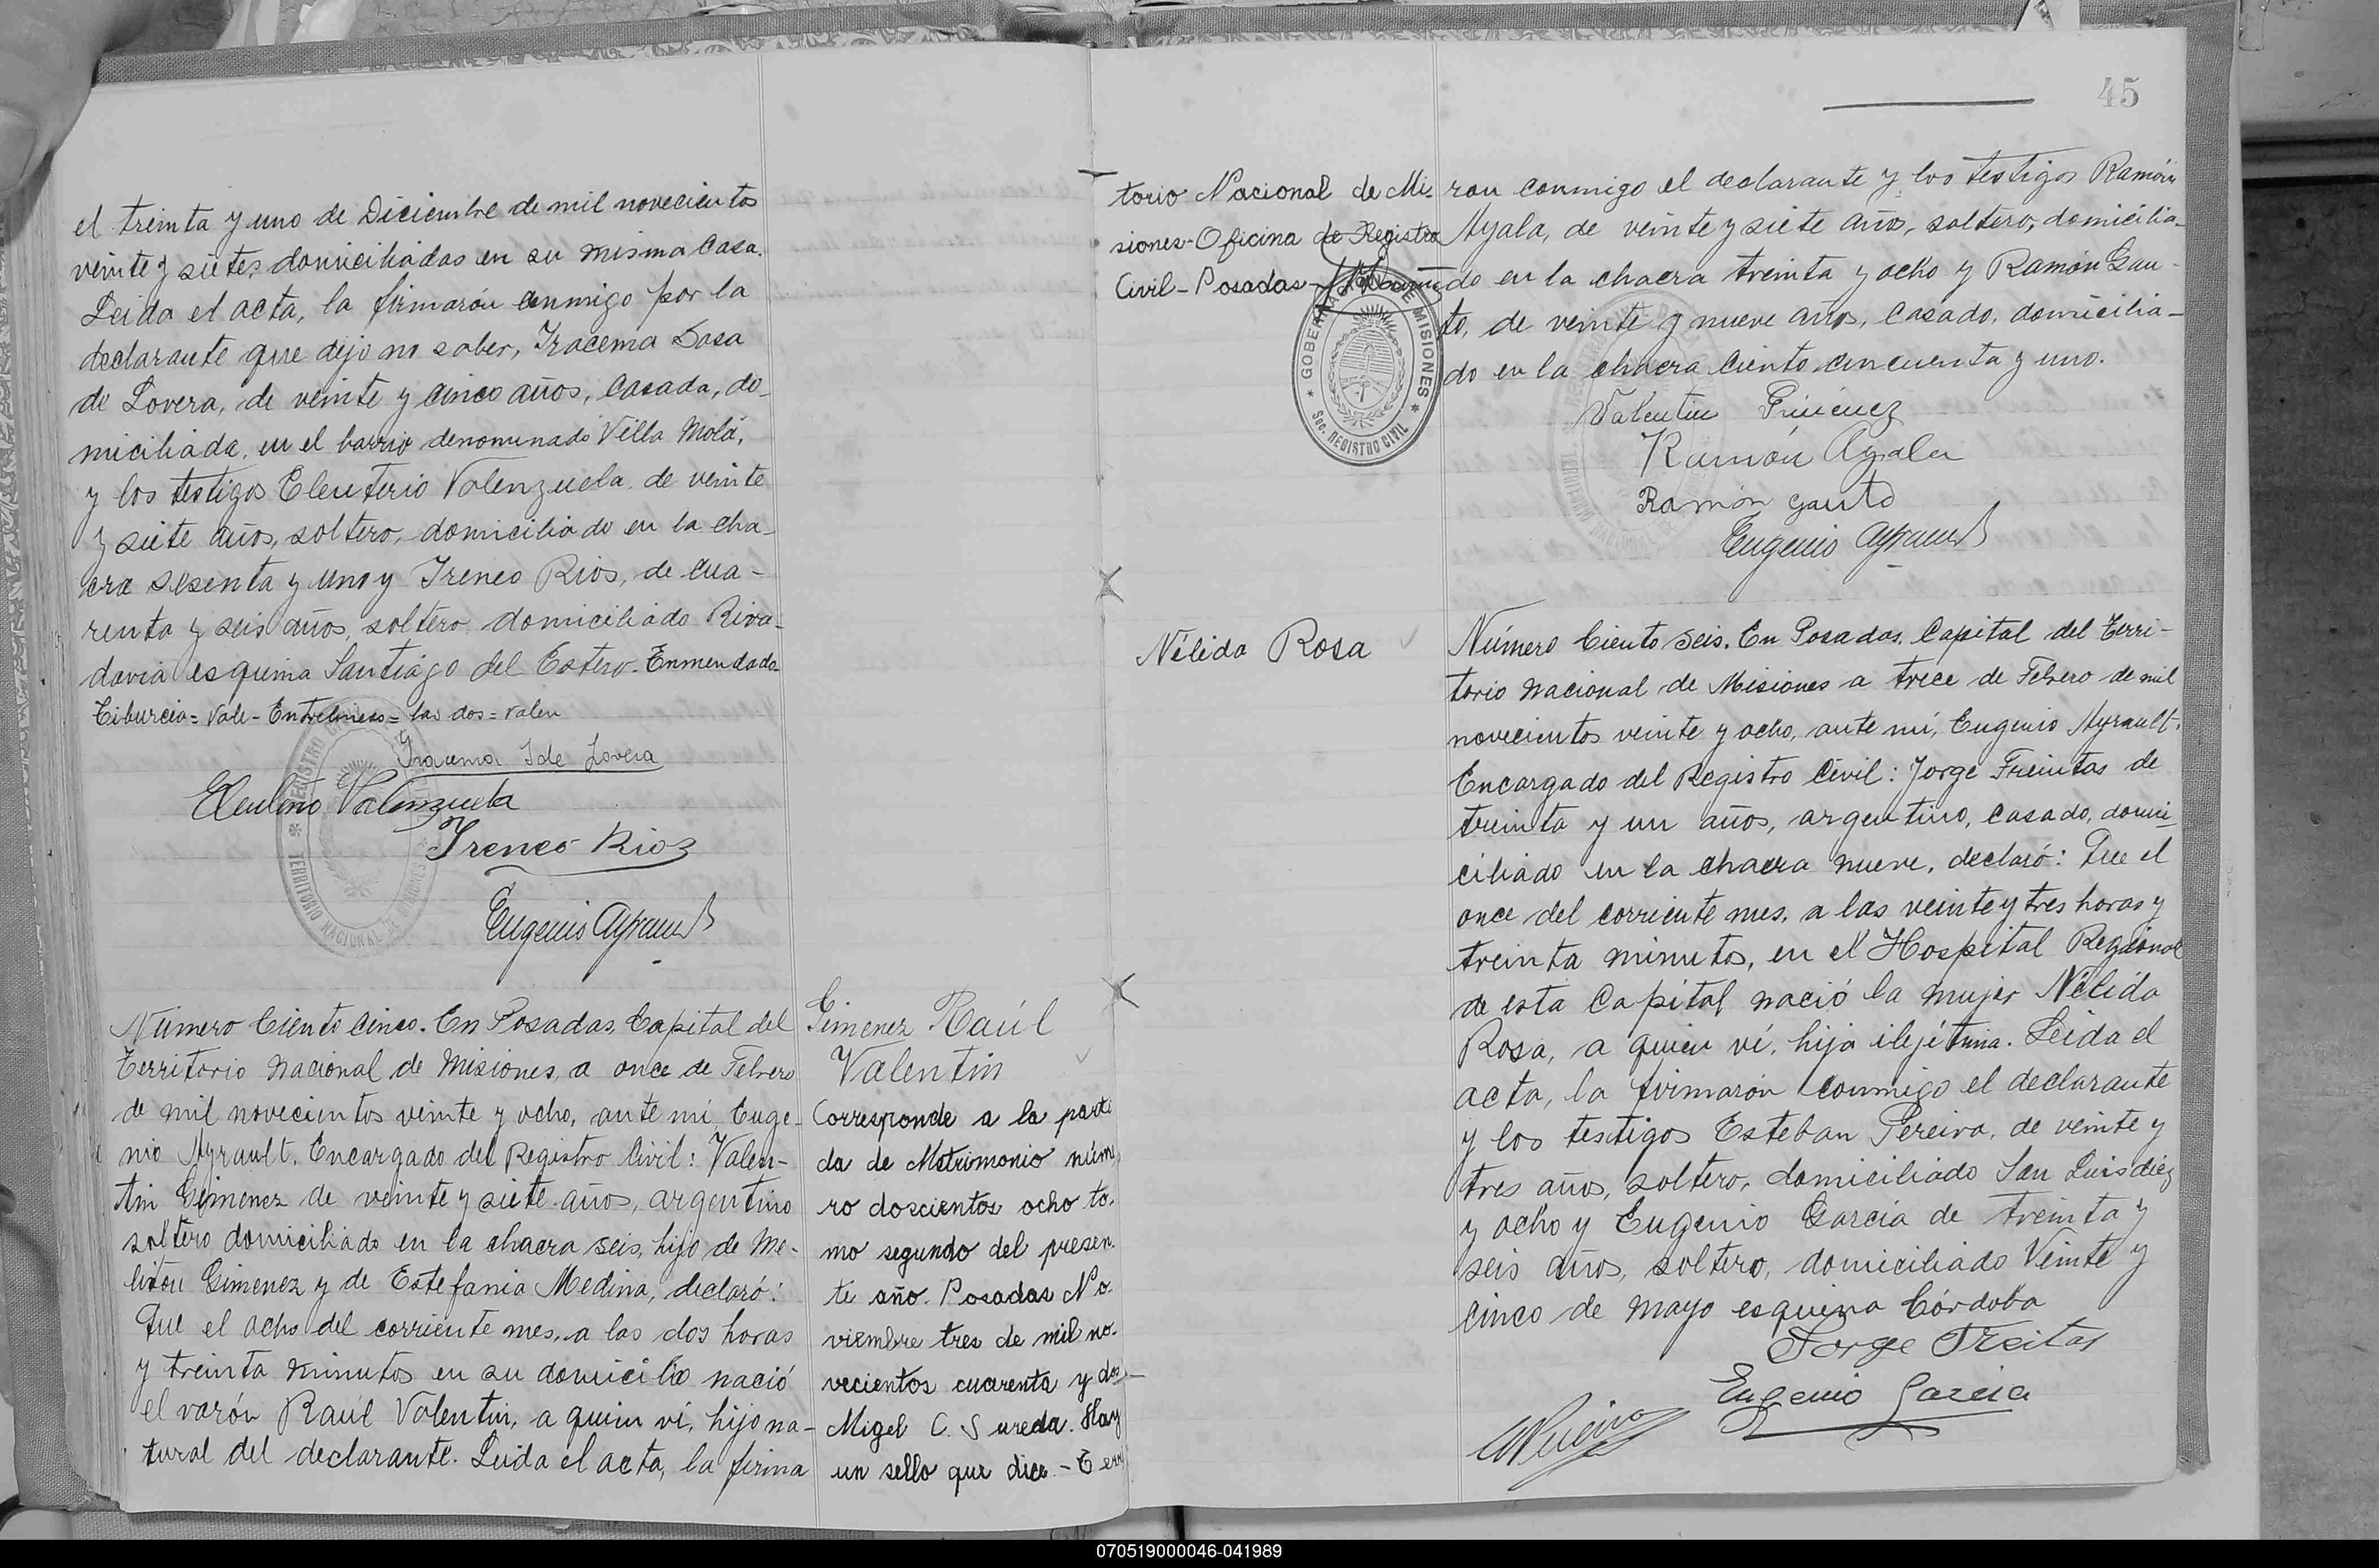 el treinta y uno de Diciembre de mil novecientos
veinte y siete, domiciliadas en su misma casa.
Leida el acta, la firmarón conmigo por la
declarante que dijo no saber, Iracema Sosa
de Lovera, de veinte y cinco años, casada, do-
miciliada, en el barrio denominado Villa Molá,
y los testigos Eleuterio Valenzuela, de veinte
y siete años, soltero, domiciliado en la cha-
cra sesenta y uno y Ireneo Rios, de cua-
renta y seis años, soltero, domiciliado Riva-
davia esquina Santiago del Estero. Enmendado
Tiburcia = Vale - Entrelineas = las dos = valen
Iracema S de Lovera
Eleuterio Valenzuela
Ireneo Rios
Eugenio Ayrault
REGISTRO CIVIL
TERRITORIO NACIONAL DE MISIONES
Número Ciento Cinco. En Posadas, Capital del
Territorio Nacional de Misiones, a once de Febrero
de mil novecientos veinte y ocho, ante mí, Euge-
nio Ayrault, Encargado del Registro Civil: Valen-
tin Gimenez de veinte y siete años, argentino
soltero domiciliado en la chacra seis, hijo de Me-
litón Gimenez y de Estefania Medina, declaró:
Que el ocho del corriente mes, a las dos horas
y treinta minutos en su domicilio nació
el varón Raúl Valentin, a quien ví, hijo na-
tural del declarante. Leida el acta, la firma
Gimenez Raúl
Valentin
Corresponde a la parti
da de Matrimonio núme
ro doscientos ocho to.
mo segundo del presen.
te año. Posadas No.
viembre tres de mil no.
vecientos cuarenta y dos
Migel C. Sureda. Hay
un sello que dice - Terri
45
torio Nacional de Mi-
siones - Oficina de Registro
Civil - Posadas -
GOBERNACION DE MISIONES
Sec. REGISTRO CIVIL
ron conmigo el declarante y los testigos Ramón
Ayala, de veinte y siete años, soltero, domicilia-
do en la chacra treinta y ocho y Ramón Gau-
to, de veinte y nueve años, casado, domicilia-
do en la chacra ciento cincuenta y uno.
Valentin Gimenez
Ramón Ayala
Ramón Gauto
Eugenio Ayrault
Nélida Rosa
Número Ciento seis. En Posadas, Capital del Terri-
torio Nacional de Misiones a trece de Febrero de mil
novecientos veinte y ocho, ante mí, Eugenio Ayrault,
Encargado del Registro Civil: Jorge Freintas de
treinta y un años, argentino, casado, domi-
ciliado en la chacra nueve, declaró: Que el
once del corriente mes, a las veinte y tres horas y
treinta minutos, en el Hospital Regional
de esta Capital nació la mujer Nélida
Rosa, a quien ví, hija ilejítima. Leida el
acta, la firmarón conmigo el declarante
y los testigos Esteban Pereira, de veinte y
tres años, soltero, domiciliado San Luis diez
y ocho y Eugenio Garcia de treinta y
seis años, soltero, domiciliado Veinte y
cinco de Mayo esquina Córdoba
Jorge Freitas
Eugenio Garcia
070519000046-041989